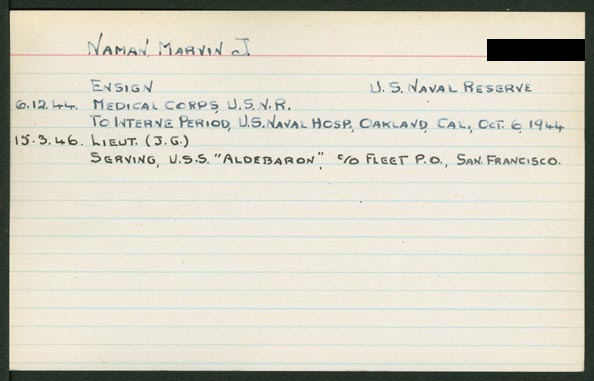 NAMAN, MARVIN J.
ENSIGN U.S. NAVAL RESERVE
6.12.44. MEDICAL CORPS, U.S.N.R.
TO INTERNE PERIOD, U.S. NAVAL HOSP., OAKLAND, CAL., OCT. 6, 1944
15.3.46. LIEUT. (J.G.)
SERVING, U.S.S. "ALDEBARON", C/O FLEET P.O., SAN FRANCISCO.